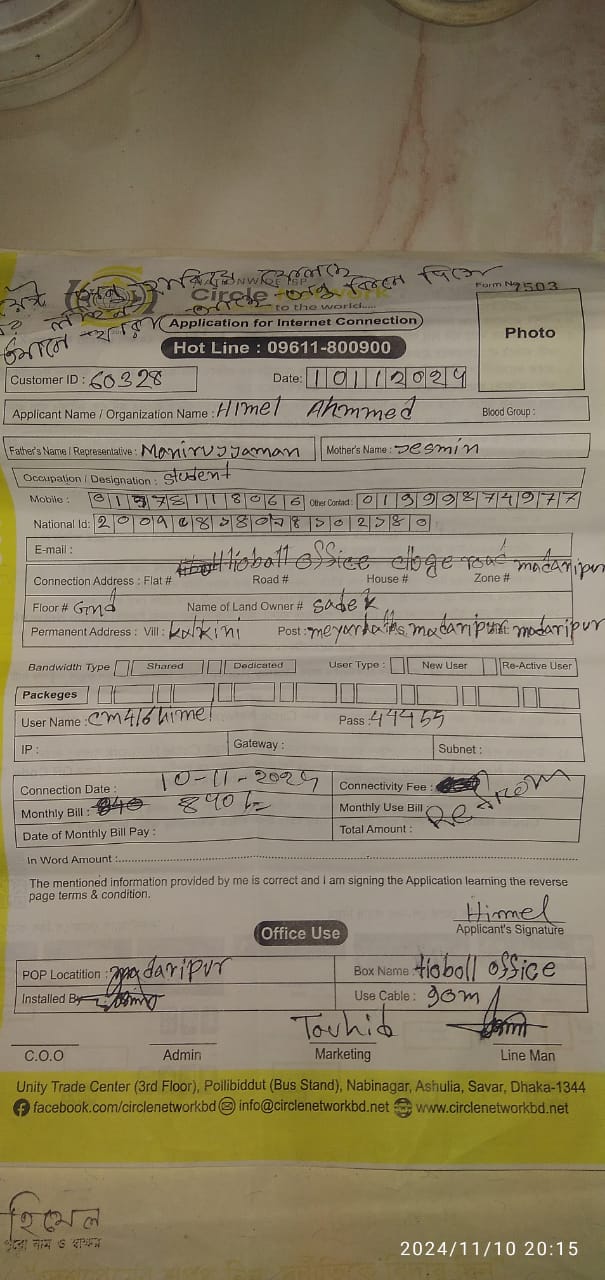 Form No 7503
Circle
to the world.....
Application for Internet Connection
Photo
Hot Line : 09611-800900
Customer ID : 60328
Date: 10112024
Applicant Name / Organization Name : Himel Ahmmed Blood Group :
Father's Name / Representative : Mother's Name : Jesmin
Occupation / Designation : student
Mobile : Other Contact : 01999874977
National Id:
E-mail :
office road madaripur
Connection Address : Flat # Road # House # Zone #
Floor # Gnd Name of Land Owner # sadek
Permanent Address : Vill : kalkini Post : madaripur madaripur
Bandwidth Type Shared Dedicated User Type : New User Re-Active User
Packeges
User Name : cm416himel Pass : 44455
IP : Gateway : Subnet :
Connection Date : 10-11-2024 Connectivity Fee :
Monthly Bill : 840/= Monthly Use Bill
Date of Monthly Bill Pay : Total Amount :
In Word Amount :
The mentioned information provided by me is correct and I am signing the Application learning the reverse
page terms & condition.
Himel
Applicant's Signature
Office Use
POP Locatition : madaripur Box Name : tioboll office
Installed By Use Cable : 90m
Touhid
C.O.O Admin Marketing Line Man
Unity Trade Center (3rd Floor), Pollibiddut (Bus Stand), Nabinagar, Ashulia, Savar, Dhaka-1344
facebook.com/circlenetworkbd info@circlenetworkbd.net www.circlenetworkbd.net
হিমেল
2024/11/10 20:15